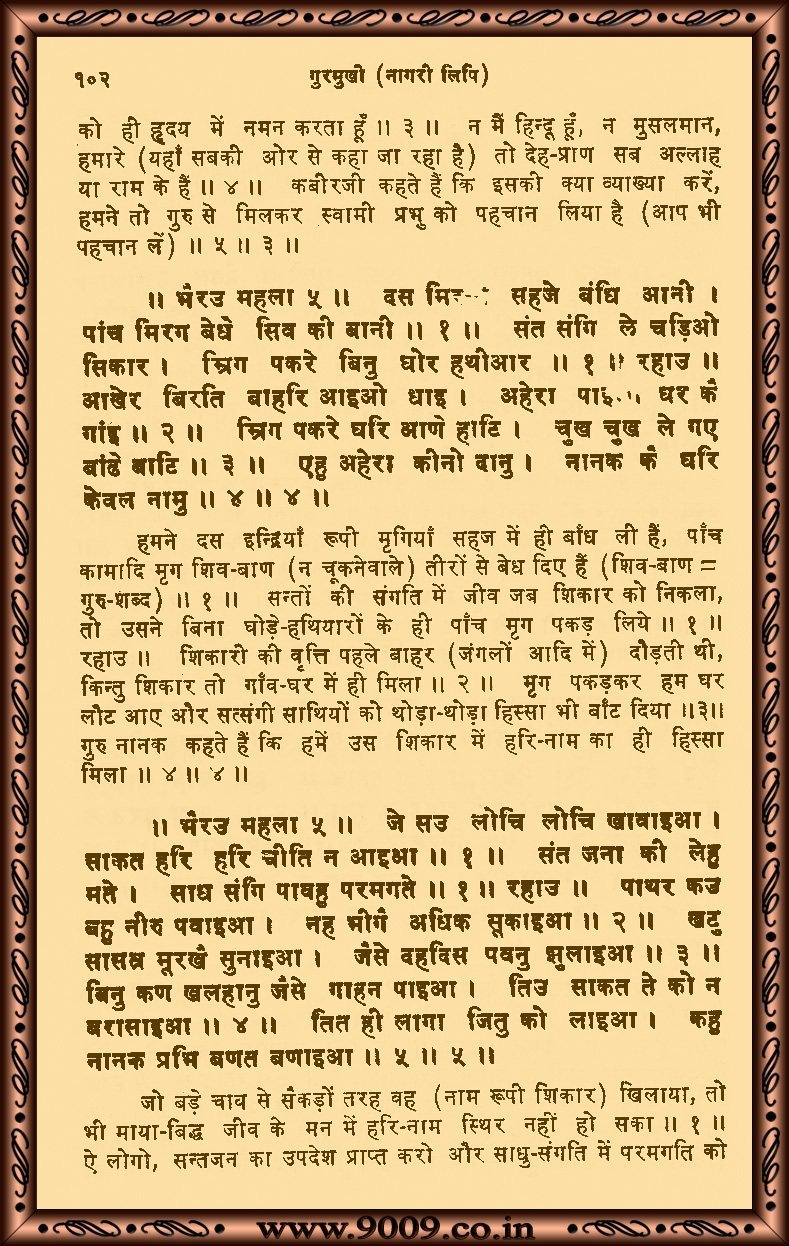 १०२ गुरमुखी (नागरी लिपि)
को ही हृदय में नमन करता हूँ ॥ ३ ॥ न मैं हिन्दू हूँ, न मुसलमान,
हमारे (यहाँ सबकी ओर से कहा जा रहा है) तो देह-प्राण सब अल्लाह
या राम के हैं ॥ ४ ॥ कबीरजी कहते हैं कि इसकी क्या व्याख्या करें,
हमने तो गुरु से मिलकर स्वामी प्रभु को पहचान लिया है (आप भी
पहचान लें) ॥ ५ ॥ ३ ॥
॥ भैरउ महला ५ ॥ दस सहजे बंधि आनी ।
पांच मिरग बेधे सिव की बानी ॥ १ ॥ संत संगि ले चड़िओ
सिकार । म्रिग पकरे बिनु घोर हथीआर ॥ १ ॥ रहाउ ॥
आखेर बिरति बाहरि आइओ धाइ । अहेरा घर कै
गांइ ॥ २ ॥ म्रिग पकरे घरि आणे हाटि । चुख चुख ले गए
बांढे बाटि ॥ ३ ॥ एहु अहेरा कीनो दानु । नानक कै घरि
केवल नामु ॥ ४ ॥ ४ ॥
हमने दस इन्द्रियाँ रूपी मृगियाँ सहज में ही बाँध ली हैं, पाँच
कामादि मृग शिव-बाण (न चूकनेवाले) तीरों से बेध दिए हैं (शिव-बाण =
गुरु-शब्द) ॥ १ ॥ सन्तों की संगति में जीव जब शिकार को निकला,
तो उसने बिना घोड़े-हथियारों के ही पाँच मृग पकड़ लिये ॥ १ ॥
रहाउ ॥ शिकारी की वृत्ति पहले बाहर (जंगलों आदि में) दौड़ती थी,
किन्तु शिकार तो गाँव-घर में ही मिला ॥ २ ॥ मृग पकड़कर हम घर
लौट आए और सत्संगी साथियों को थोड़ा-थोड़ा हिस्सा भी बाँट दिया ॥३॥
गुरु नानक कहते हैं कि हमें उस शिकार में हरि-नाम का ही हिस्सा
मिला ॥ ४ ॥ ४ ॥
॥ भैरउ महला ५ ॥ जे सउ लोचि लोचि खावाइआ ।
साकत हरि हरि चीति न आइआ ॥ १ ॥ संत जना की लेहु
मते । साध संगि पावहु परमगते ॥ १ ॥ रहाउ ॥ पाथर कउ
बहु नीरु पवाइआ । नह भीगै अधिक सूकाइआ ॥ २ ॥ खटु
सासत्र मूरखै सुनाइआ । जैसे दहदिस पवनु झुलाइआ ॥ ३ ॥
बिनु कण खलहानु जैसे गाहन पाइआ । तिउ साकत ते को न
बरासाइआ ॥ ४ ॥ तित ही लागा जितु को लाइआ । कहु
नानक प्रभि बणत बणाइआ ॥ ५ ॥ ५ ॥
जो बड़े चाव से सैकड़ों तरह वह (नाम रूपी शिकार) खिलाया, तो
भी माया-बिद्ध जीव के मन में हरि-नाम स्थिर नहीं हो सका ॥ १ ॥
ऐ लोगो, सन्तजन का उपदेश प्राप्त करो और साधु-संगति में परमगति को
www.9009.co.in